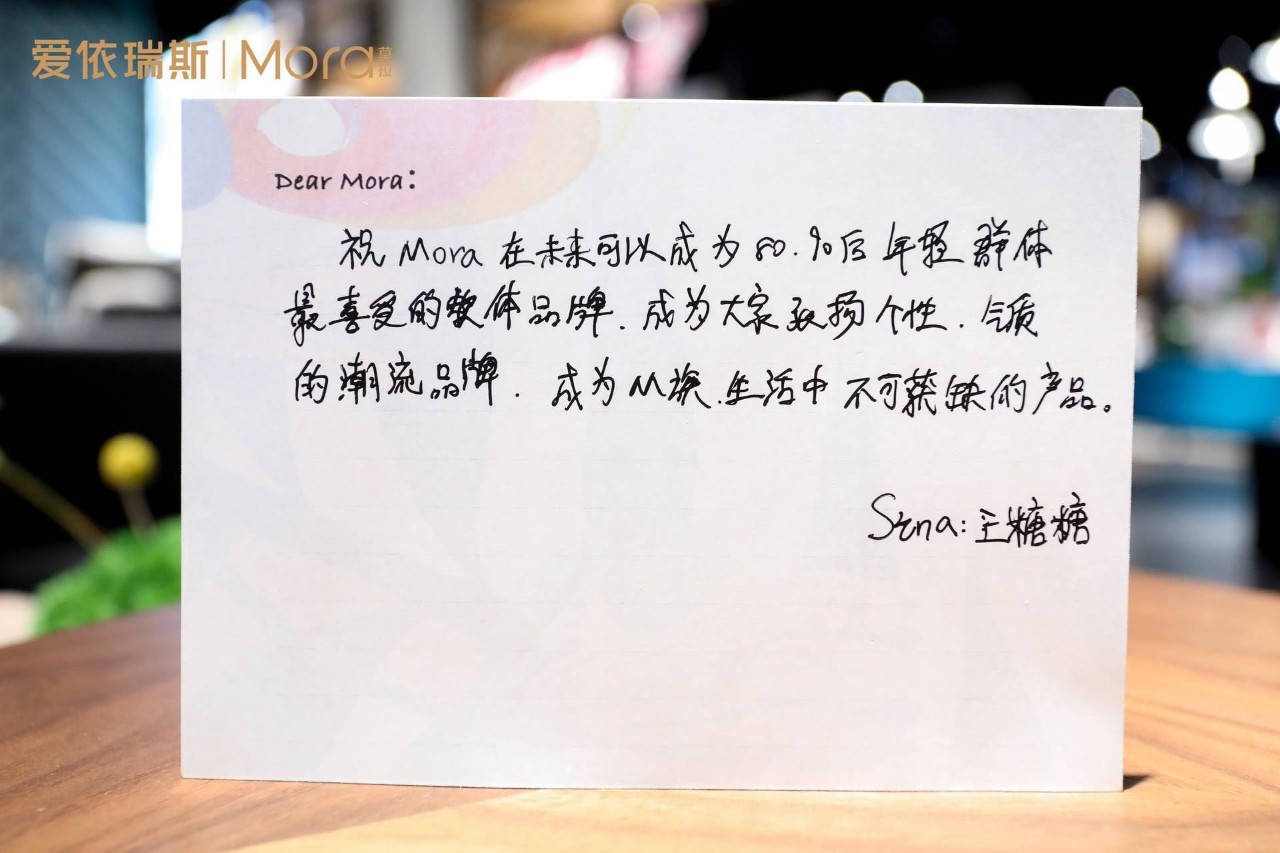 爱依瑞斯 | Mora 慕拉
Dear Mora:
祝 Mora 在未来可以成为 80.90后 年轻群体
最喜爱的软体品牌. 成为大家张扬个性. 气质
的潮流品牌. 成为 生活中 不可或缺的产品。
Szna: 王糖糖